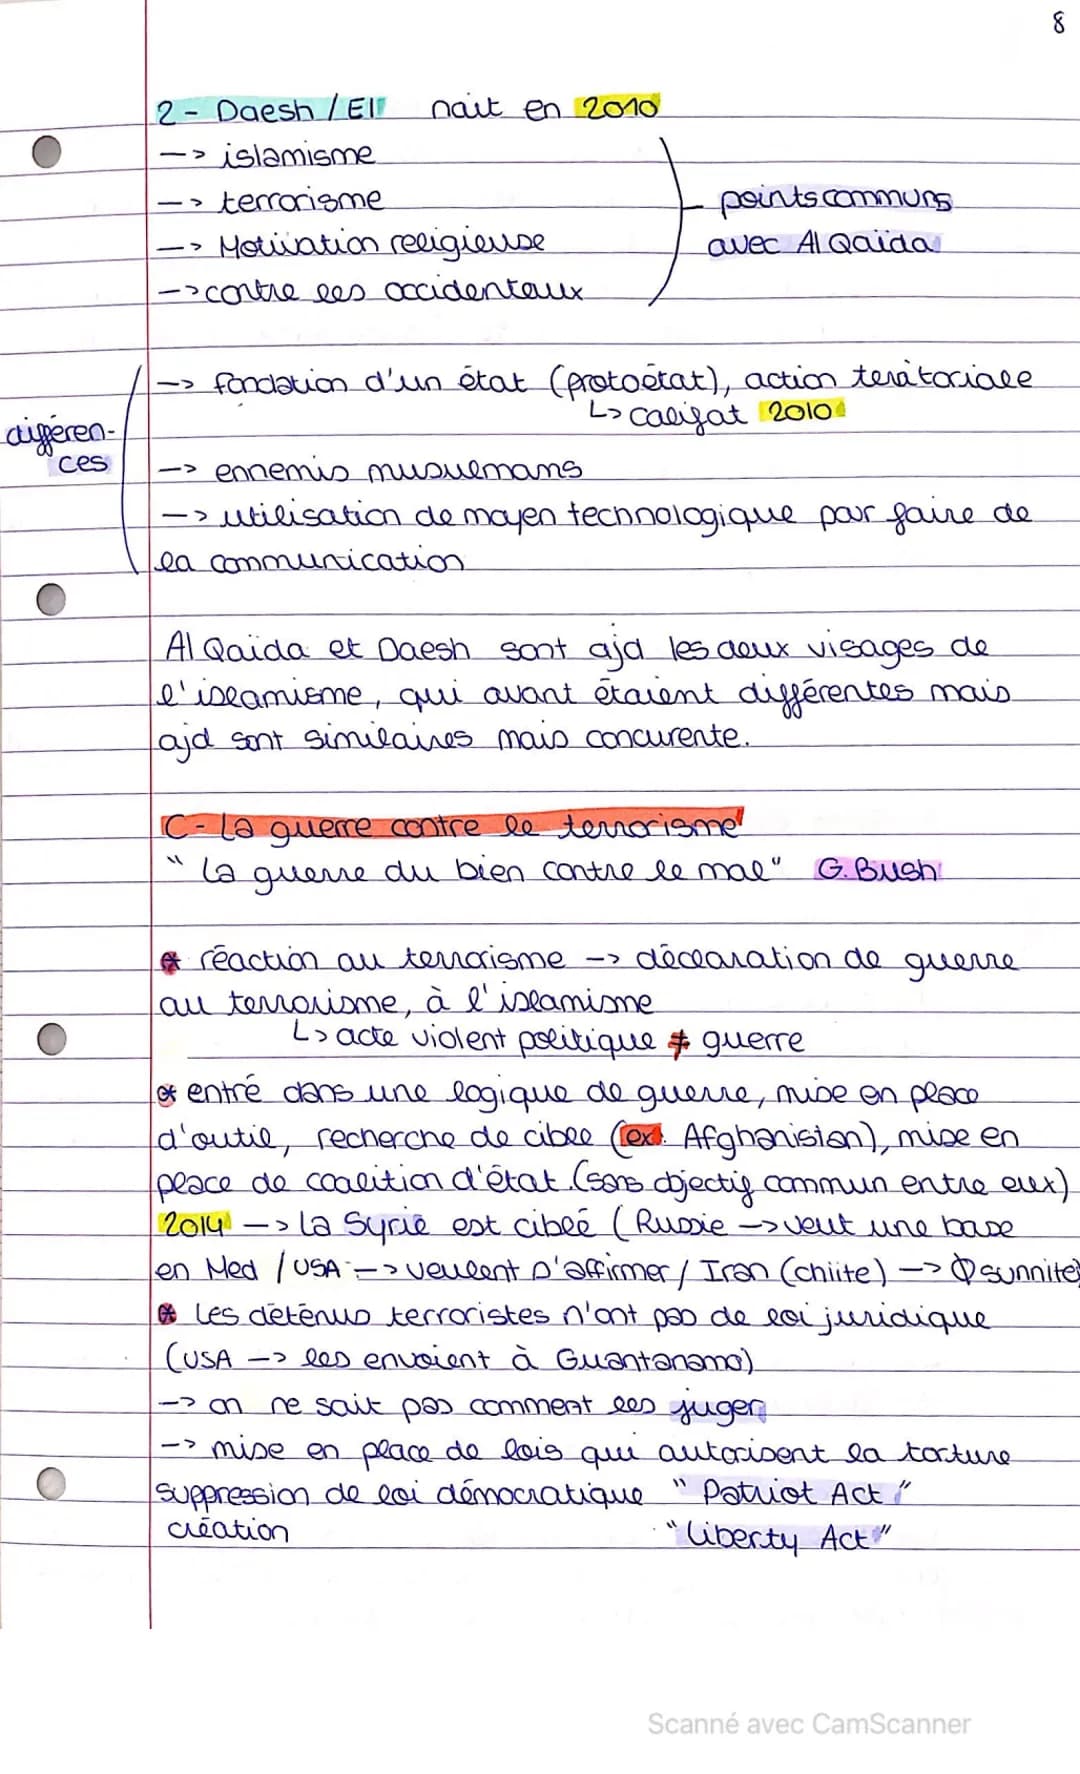 8
2 - Daesh / EII nait en 2010
-> islamisme
-> terrorisme
-> Motivation religieuse
-> contre les occidentaux
points communs
avec Al Qaïda
différen-
ces
-> fondation d'un état (protoétat), action teratoriale
↳ califat 2010
-> ennemis musulmans
-> utilisation de moyen technologique pour faire de
la communication
Al Qaïda et Daesh sont ajd les deux visages de
l'islamisme, qui avant étaient différentes mais
ajd sont similaires mais concurente.
C - La guerre contre le terrorisme
"La guerre du bien contre le mal" G. Bush
* réaction au terrorisme -> déclaration de guerre
au terrorisme, à l'islamisme
↳ acte violent politique ≠ guerre
* entré dans une logique de guerre, mise en place
d'outil, recherche de cible (ex: Afghanistan), mise en
place de coalition d'état. (sans objectif commun entre eux)
2014 -> La Syrie est ciblé (Russie -> veut une base
en Med / USA -> veulent s'affirmer / Iran (chiite) -> Φ sunnite)
* Les détenus terroristes n'ont pas de loi juridique
(USA -> les envoient à Guantanamo)
-> on ne sait pas comment les juger
-> mise en place de lois qui autorisent la torture
suppression de loi démocratique "Patriot Act"
création "Liberty Act"
Scanné avec CamScanner